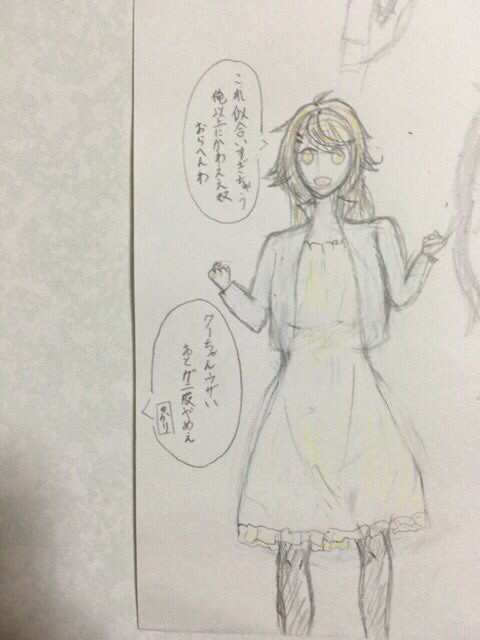 これ似合いすぎちゃう
俺以上にかわええ奴
おらへんわ
クーちゃんウザい
あとガニ股やめぇ
ゆかり